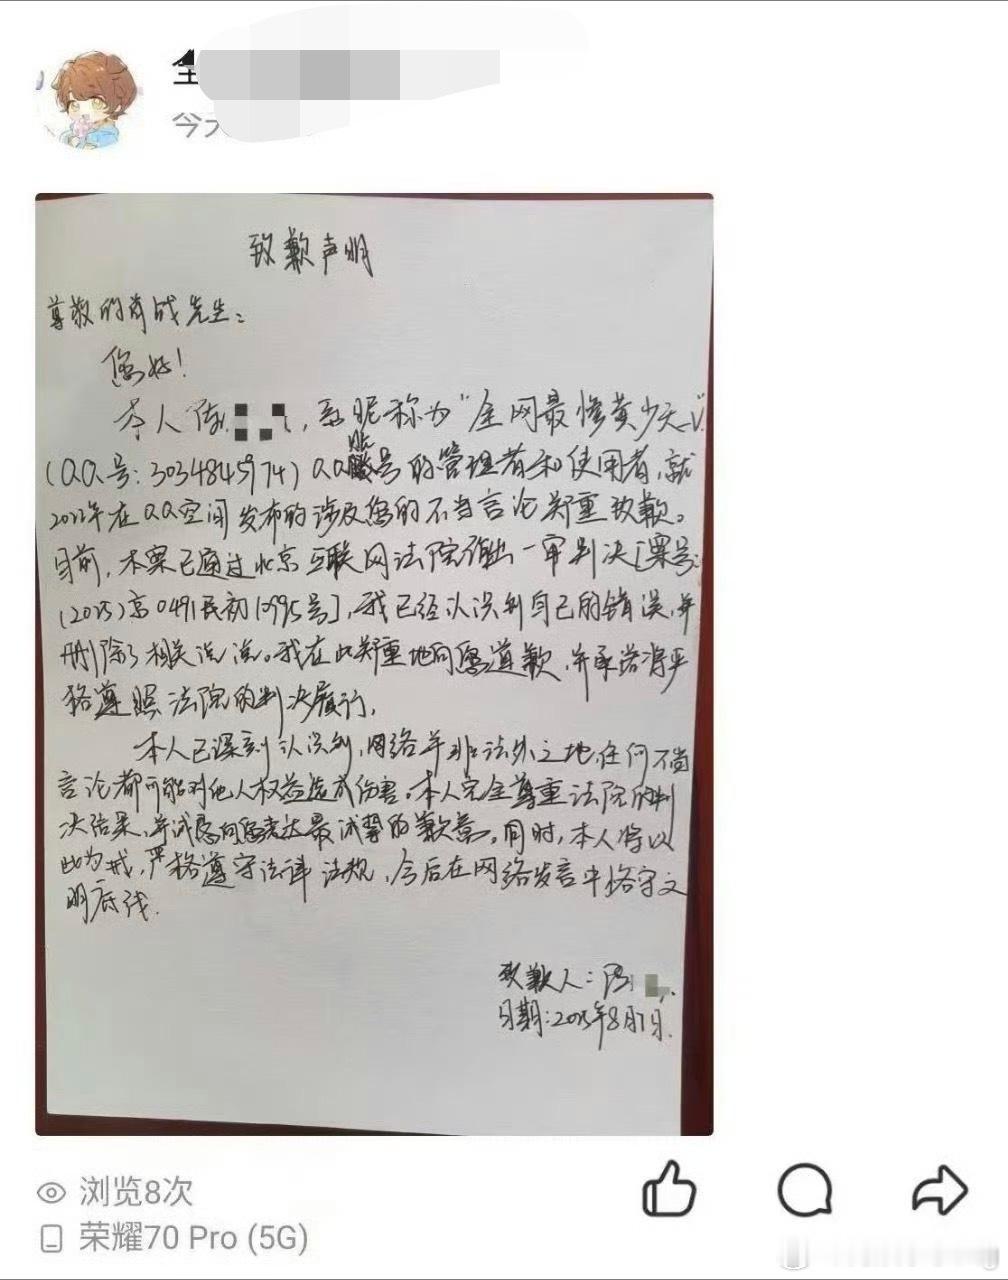 全
今天
致歉声明
尊敬的肖战先生：
您好！
本人陈，系昵称为“全网最惨黄少天_V”
(QQ号：3034845974) QQ账号的管理者和使用者，就
2022年在QQ空间发布的涉及您的不当言论郑重致歉。
目前，本案已通过北京互联网法院作出一审判决[案号：
(2025)京0491民初12995号]，我已经认识到自己的错误，并
删除了相关说说。我在此郑重地向您道歉，并承诺将严
格遵照法院的判决履行，
本人已深刻认识到，网络并非法外之地，任何不当
言论都可能对他人权益造成伤害。本人完全尊重法院的判
决结果，并诚恳向您表达最诚挚的歉意。同时，本人将以
此为戒，严格遵守法律法规，今后在网络发言中恪守文
明底线.
致歉人：陈
日期：2025年8月7日.
浏览8次
荣耀70 Pro (5G)